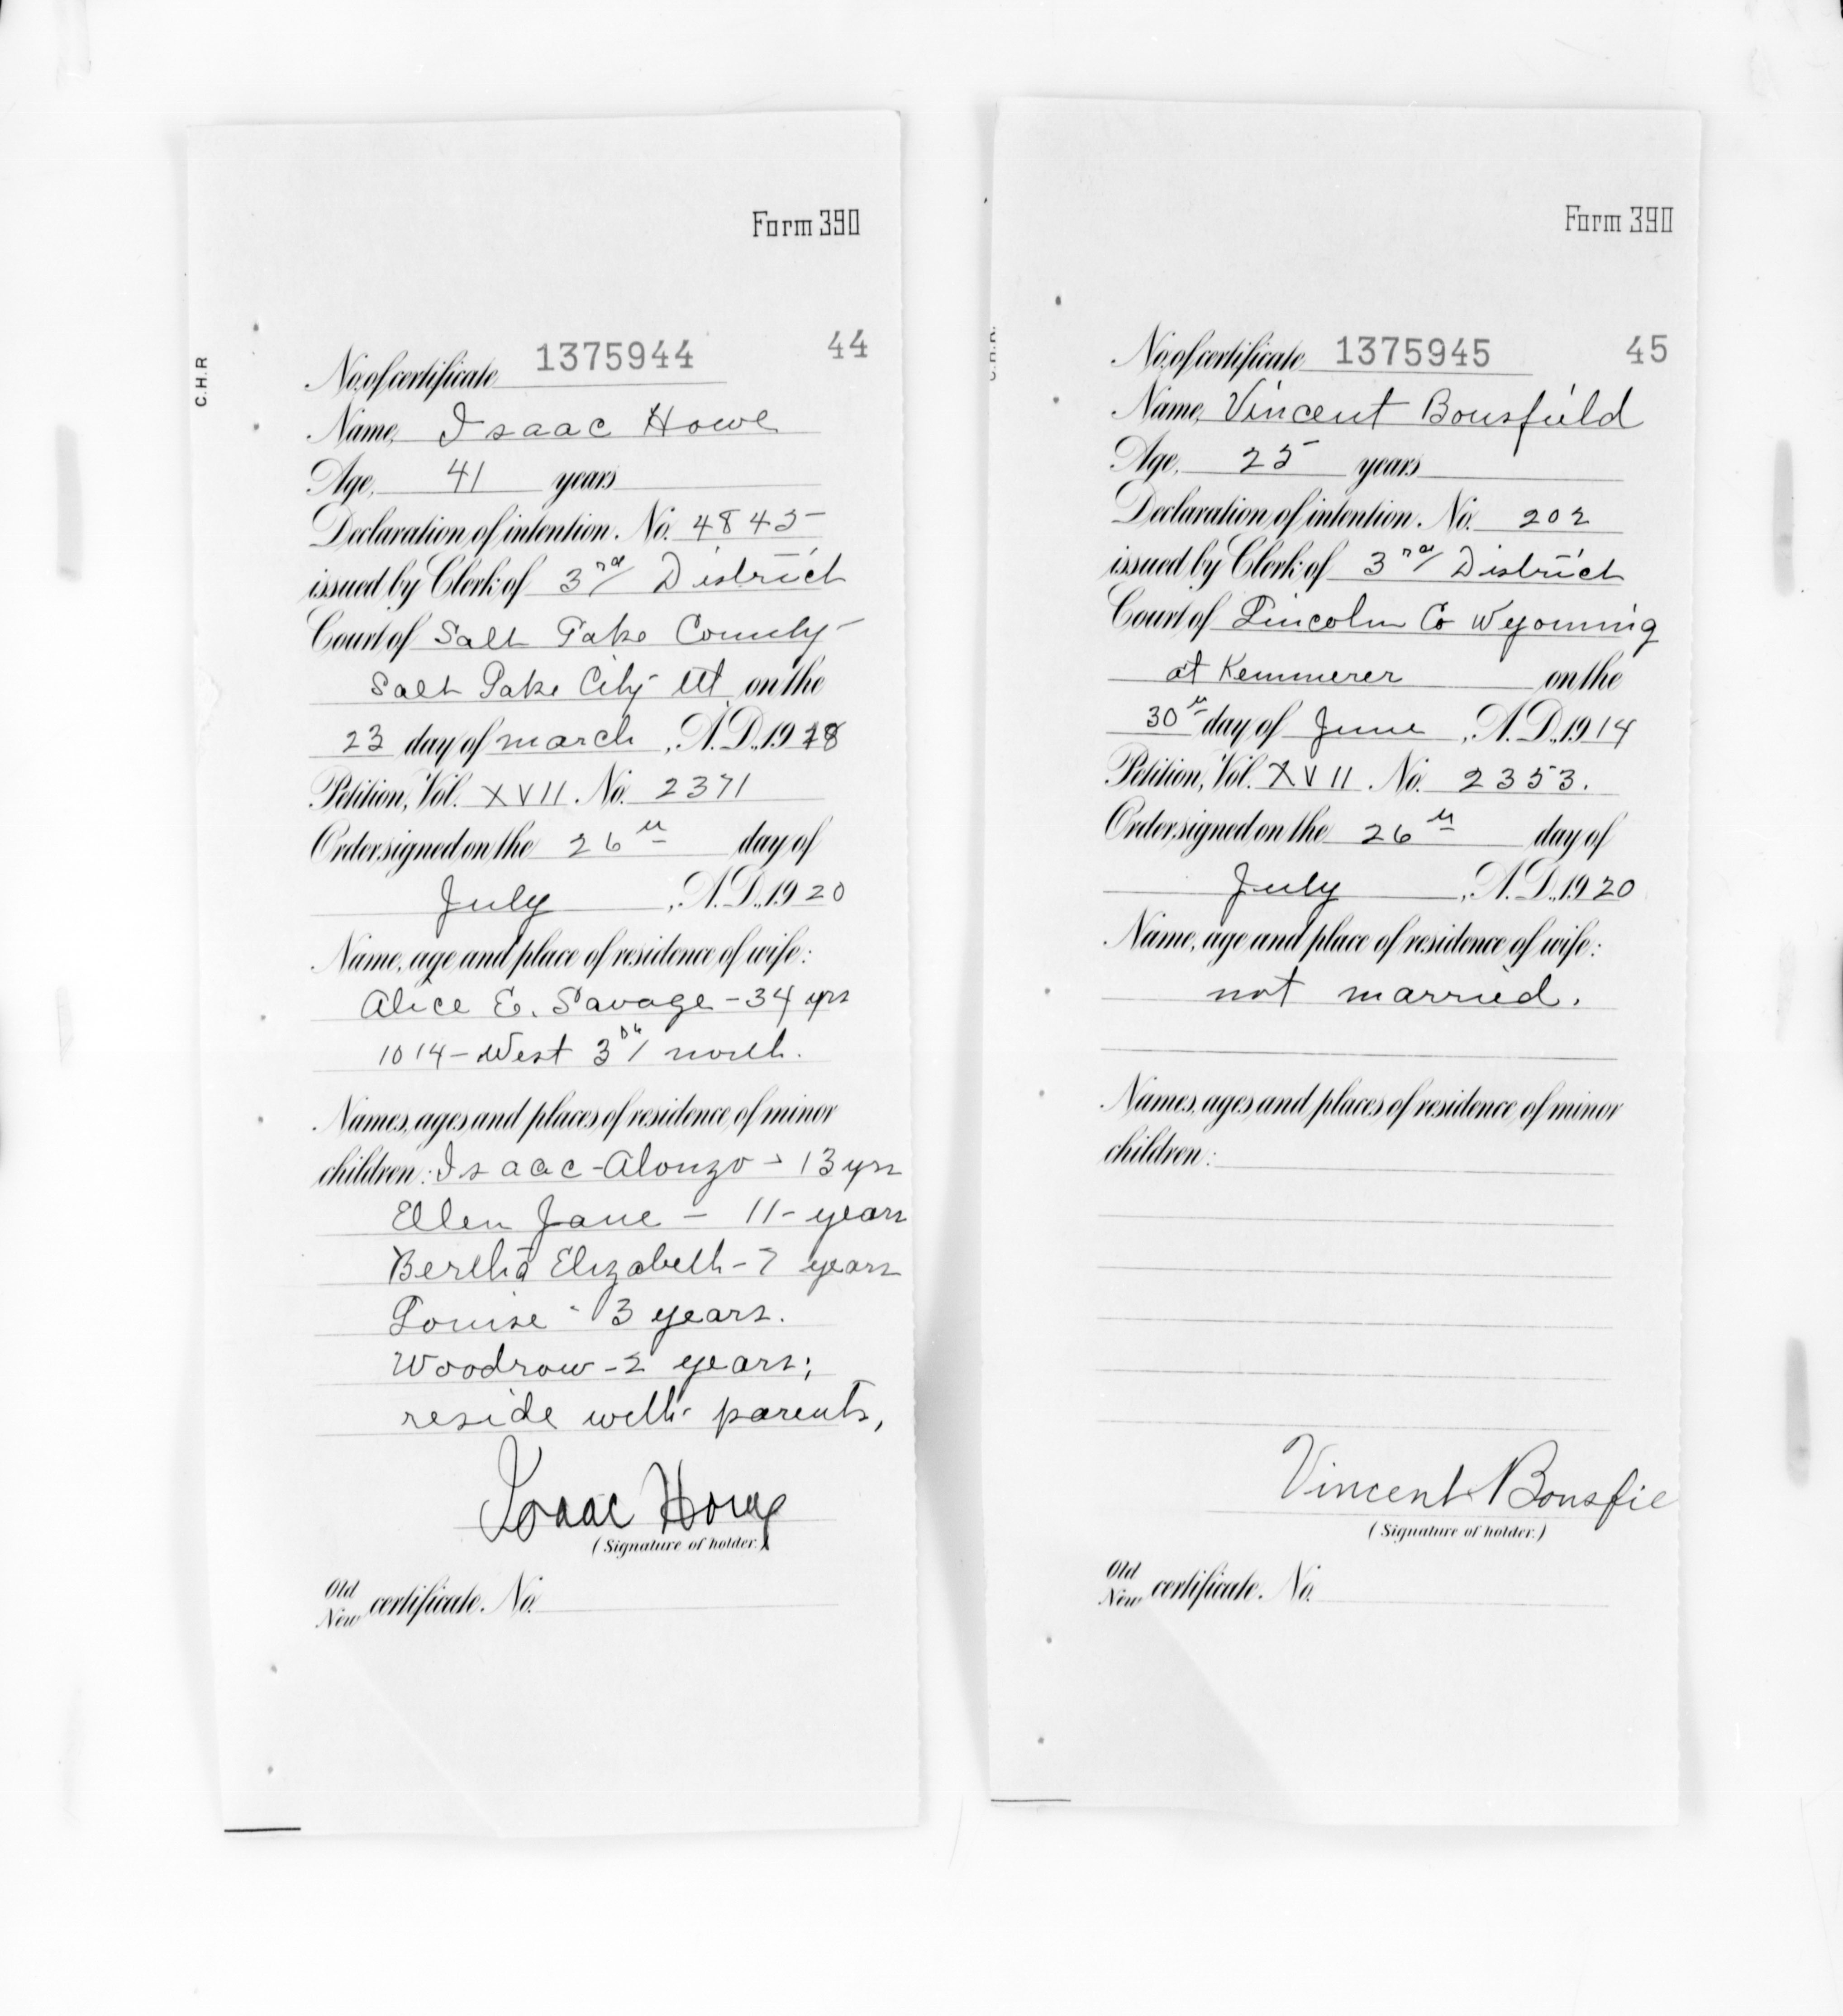 Form 390
C.H.R
No. of certificate 1375944 44
Name, Isaac Howe
Age, 41 years
Declaration of intention. No. 4845
issued by Clerk of 3rd District
Court of Salt Lake County
Salt Lake City Ut on the
23 day of march, A.D., 1918
Petition, Vol. XVII. No. 2371
Order signed on the 26th day of
July, A.D., 1920
Name, age and place of residence of wife:
Alice E. Savage - 34 yrs
1014 - West 3rd north.
Names, ages and places of residence of minor
children: Isaac - Alonzo - 13 yrs
Ellen Jane - 11 - years
Bertha Elizabeth - 7 years
Louise - 3 years.
Woodrow - 2 years;
reside with parents,
Isaac Howe
(Signature of holder.)
Old
New certificate. No.
Form 390
C.H.R.
No. of certificate 1375945 45
Name, Vincent Bousfield
Age, 25 years
Declaration of intention. No. 202
issued by Clerk of 3rd District
Court of Lincoln Co Wyoming
at Kemmerer on the
30th day of June, A.D., 1914
Petition, Vol. XVII. No. 2353.
Order signed on the 26th day of
July, A.D., 1920
Name, age and place of residence of wife:
not married.
Names, ages and places of residence of minor
children:
Vincent Bousfie
(Signature of holder.)
Old
New certificate. No.